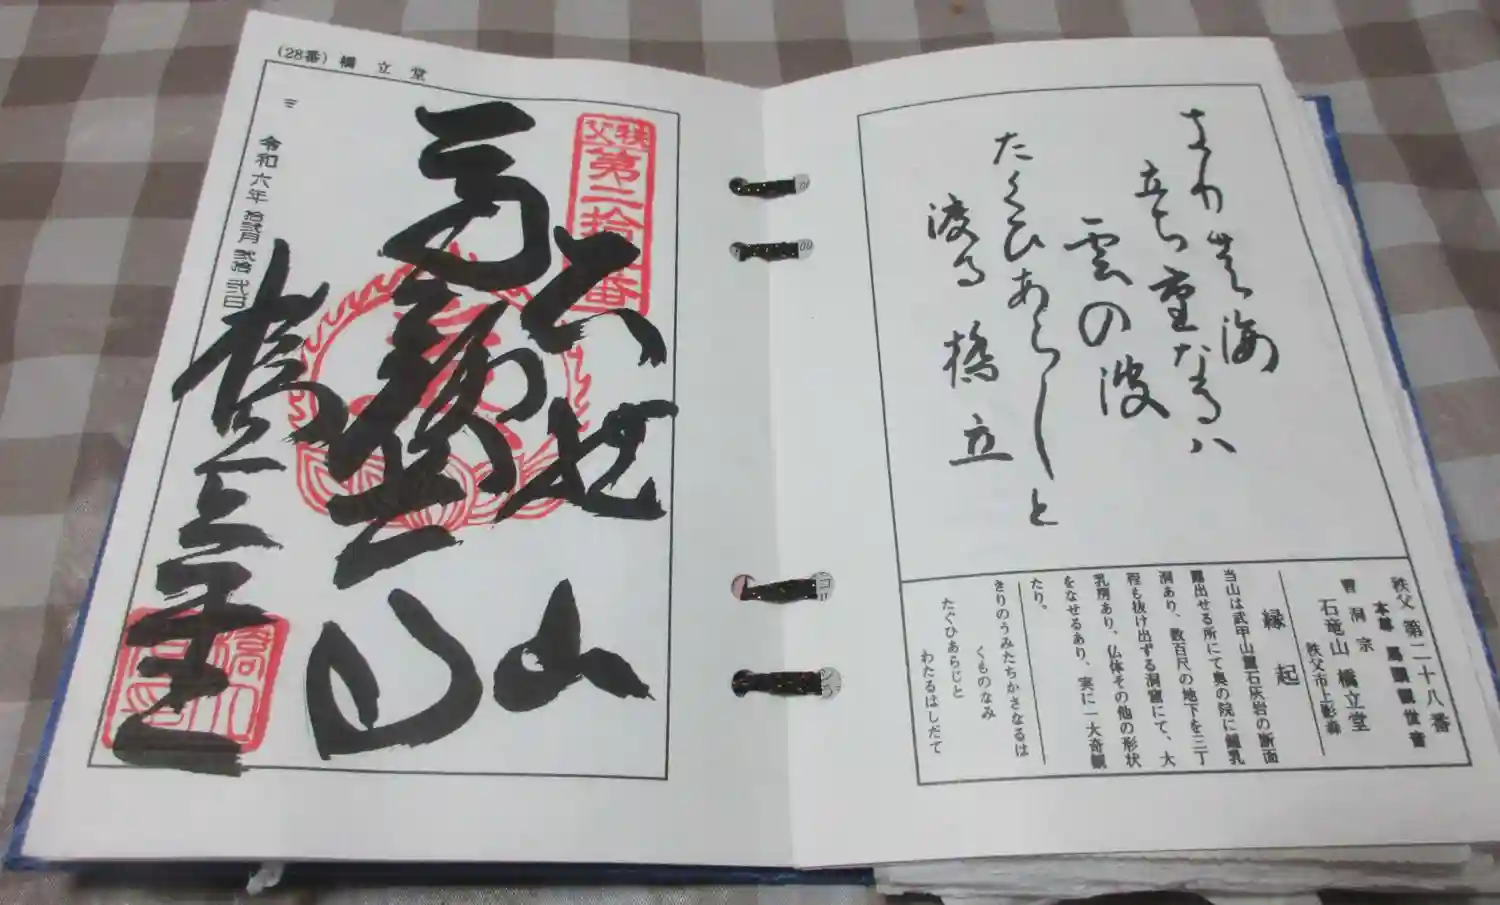 (28番) 橋立堂
令和六年 拾弐月 弐拾弐日
秩父
第二拾八番
石龍山
馬頭
橋立堂
きり登海
立ち重なるハ
雲の波
たくひあらしと
渡る橋立
秩父 第二十八番
本尊 馬頭観世音
曹洞宗
石竜山 橋立堂
秩父市上影森
縁起
当山は武甲山麓石灰岩の断面
露出せる所にて奥の院に鍾乳
洞あり、数百尺の地下を三丁
程も抜け出ずる洞窟にて、大
乳房あり、仏体その他の形状
をなせるあり、実に一大奇観
たり。
きりのうみたちかさなるは
くものなみ
たぐひあらじと
わたるはしだて